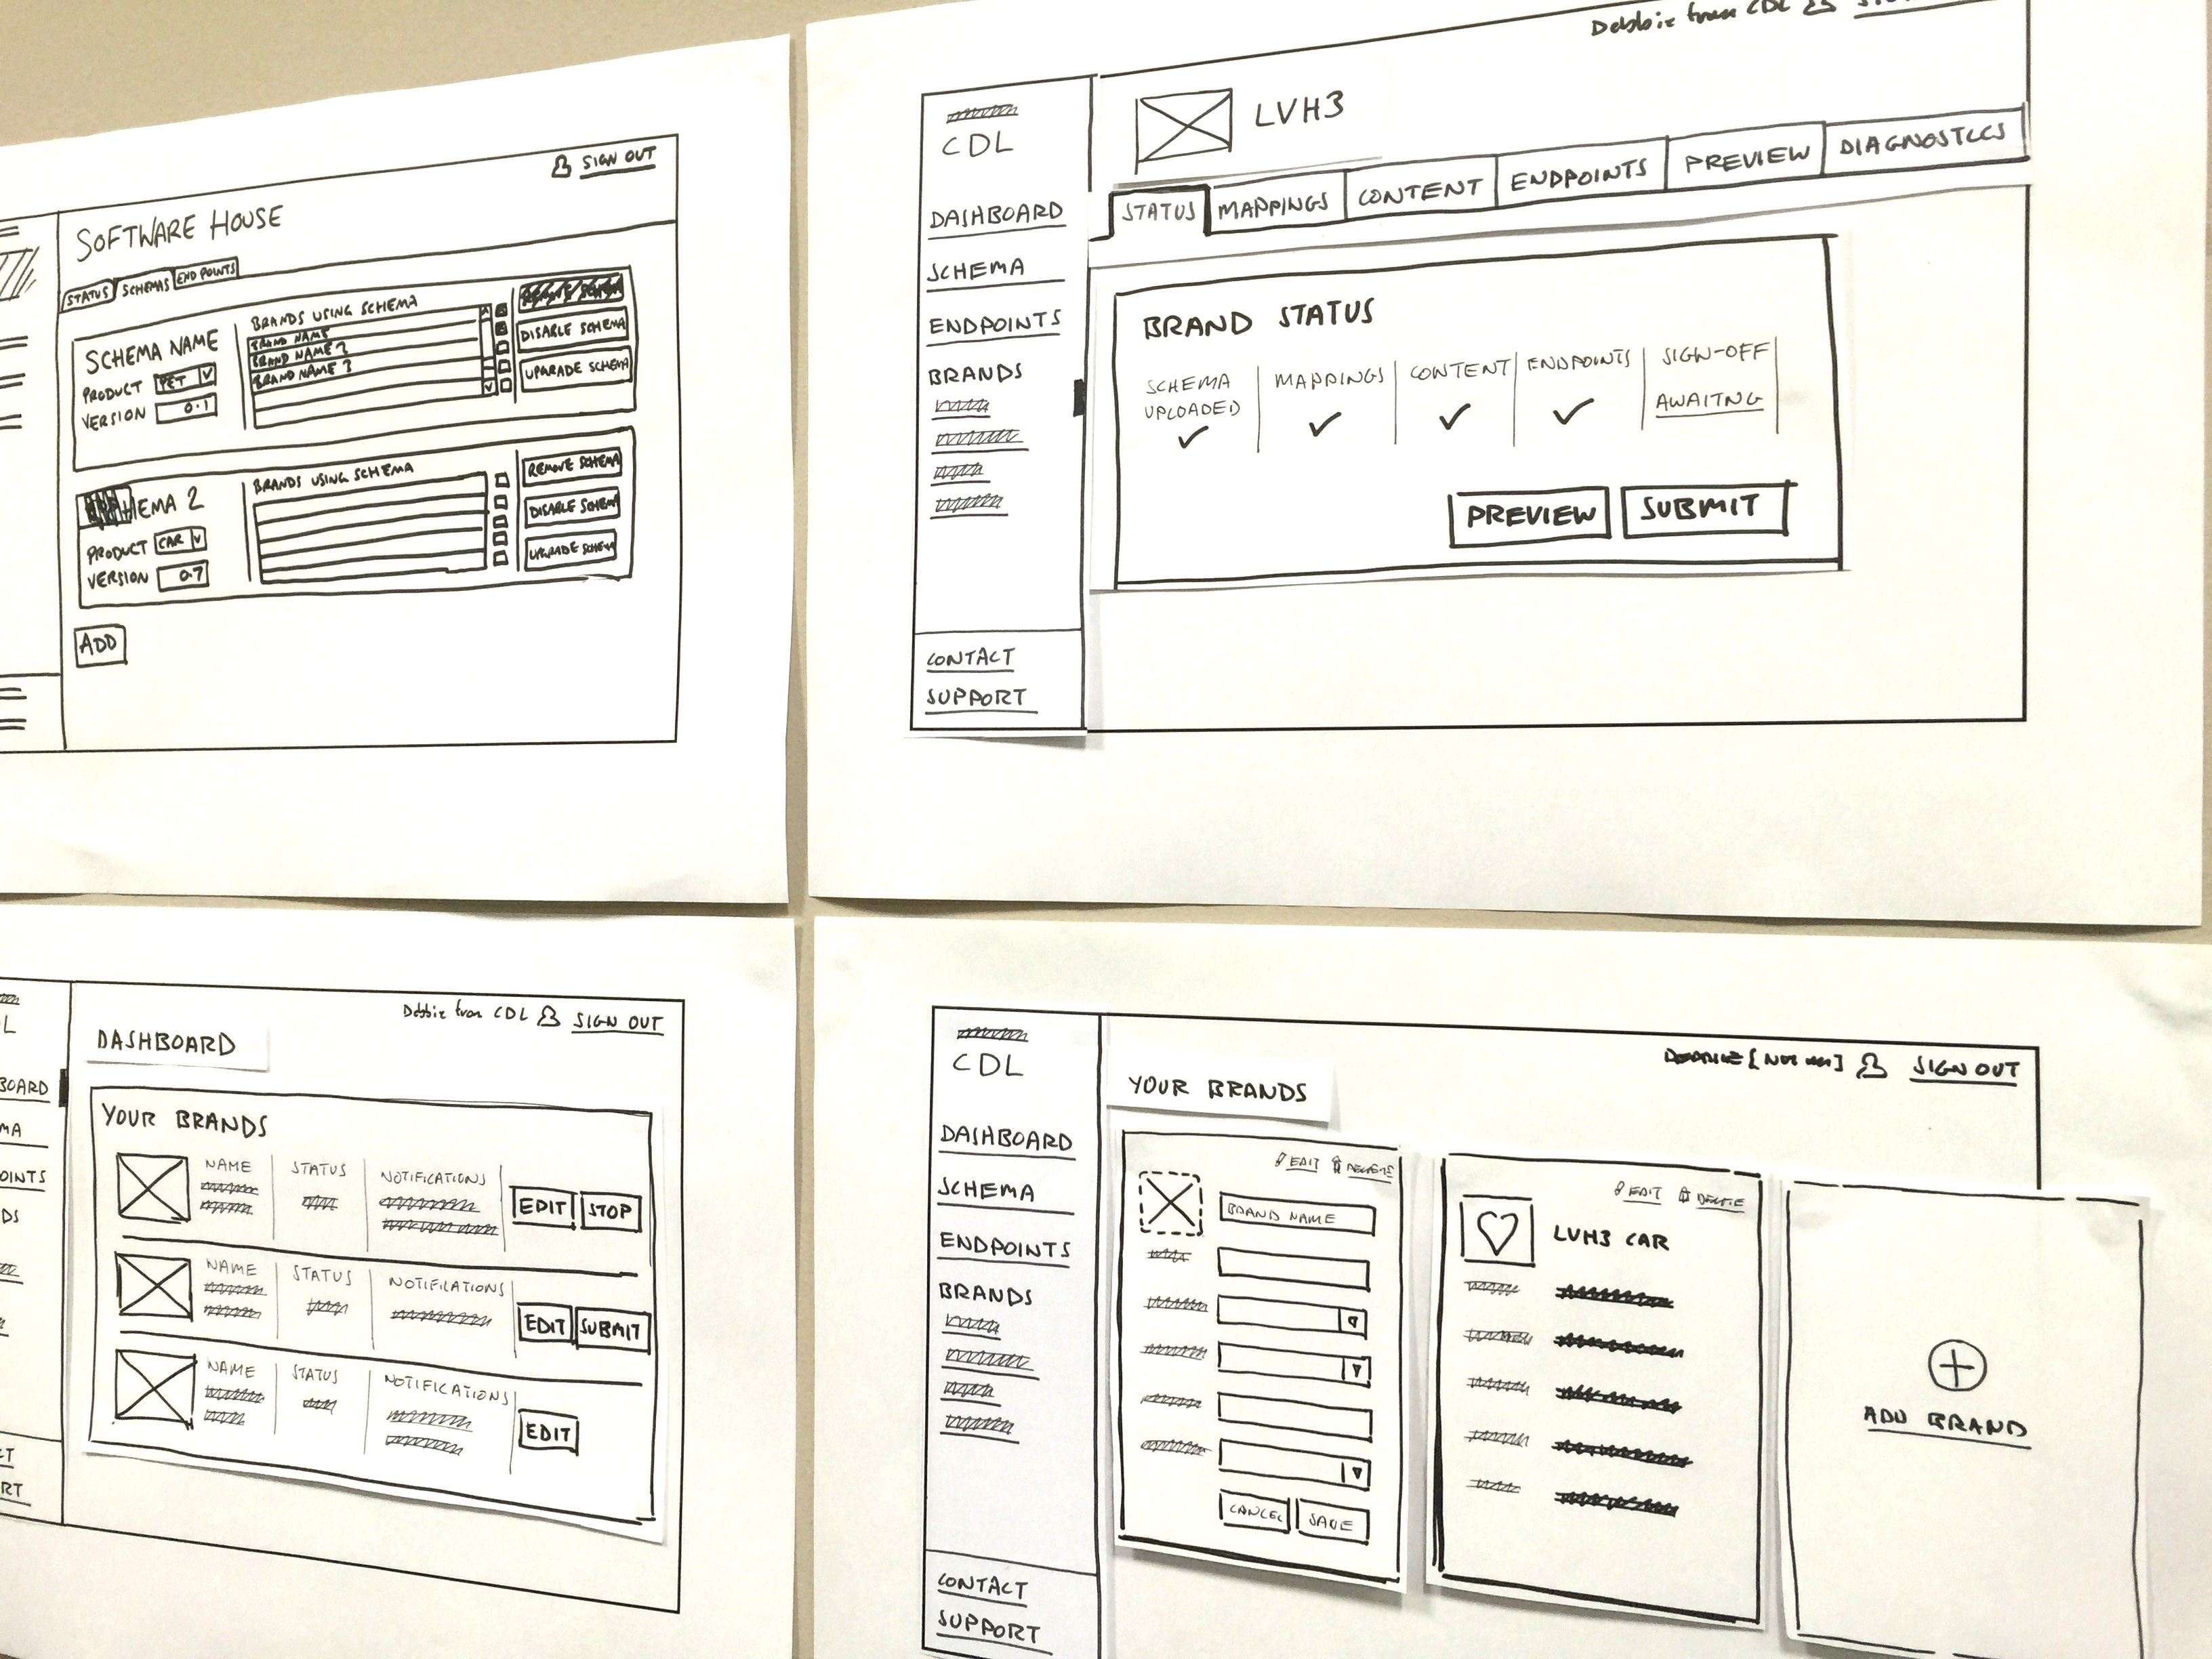 SIGN OUT
SOFTWARE HOUSE
STATUS SCHEMAS END POINTS
SCHEMA NAME
PRODUCT PET
VERSION 0.1
BRANDS USING SCHEMA
BRAND NAME
BRAND NAME 2
BRAND NAME 3
DISABLE SCHEMA
UPGRADE SCHEMA
HEMA 2
PRODUCT CAR
VERSION 0.7
BRANDS USING SCHEMA
REMOVE SCHEMA
DISABLE SCHEMA
UPGRADE SCHEMA
ADD
Debbie from CDL
CDL
DASHBOARD
SCHEMA
ENDPOINTS
BRANDS
CONTACT
SUPPORT
LVH3
STATUS MAPPINGS CONTENT ENDPOINTS PREVIEW DIAGNOSTICS
BRAND STATUS
SCHEMA
UPLOADED
MAPPINGS
CONTENT
ENDPOINTS
SIGN-OFF
AWAITNG
PREVIEW SUBMIT
L
BOARD
MA
OINTS
DS
CT
RT
Debbie from CDL SIGN OUT
DASHBOARD
YOUR BRANDS
NAME STATUS NOTIFICATIONS
EDIT STOP
NAME STATUS NOTIFICATIONS
EDIT SUBMIT
NAME STATUS NOTIFICATIONS
EDIT
CDL
DASHBOARD
SCHEMA
ENDPOINTS
BRANDS
CONTACT
SUPPORT
SIGN OUT
YOUR BRANDS
EDIT DELETE
BRAND NAME
CANCEL SAVE
EDIT DELETE
LVH3 CAR
ADD BRAND